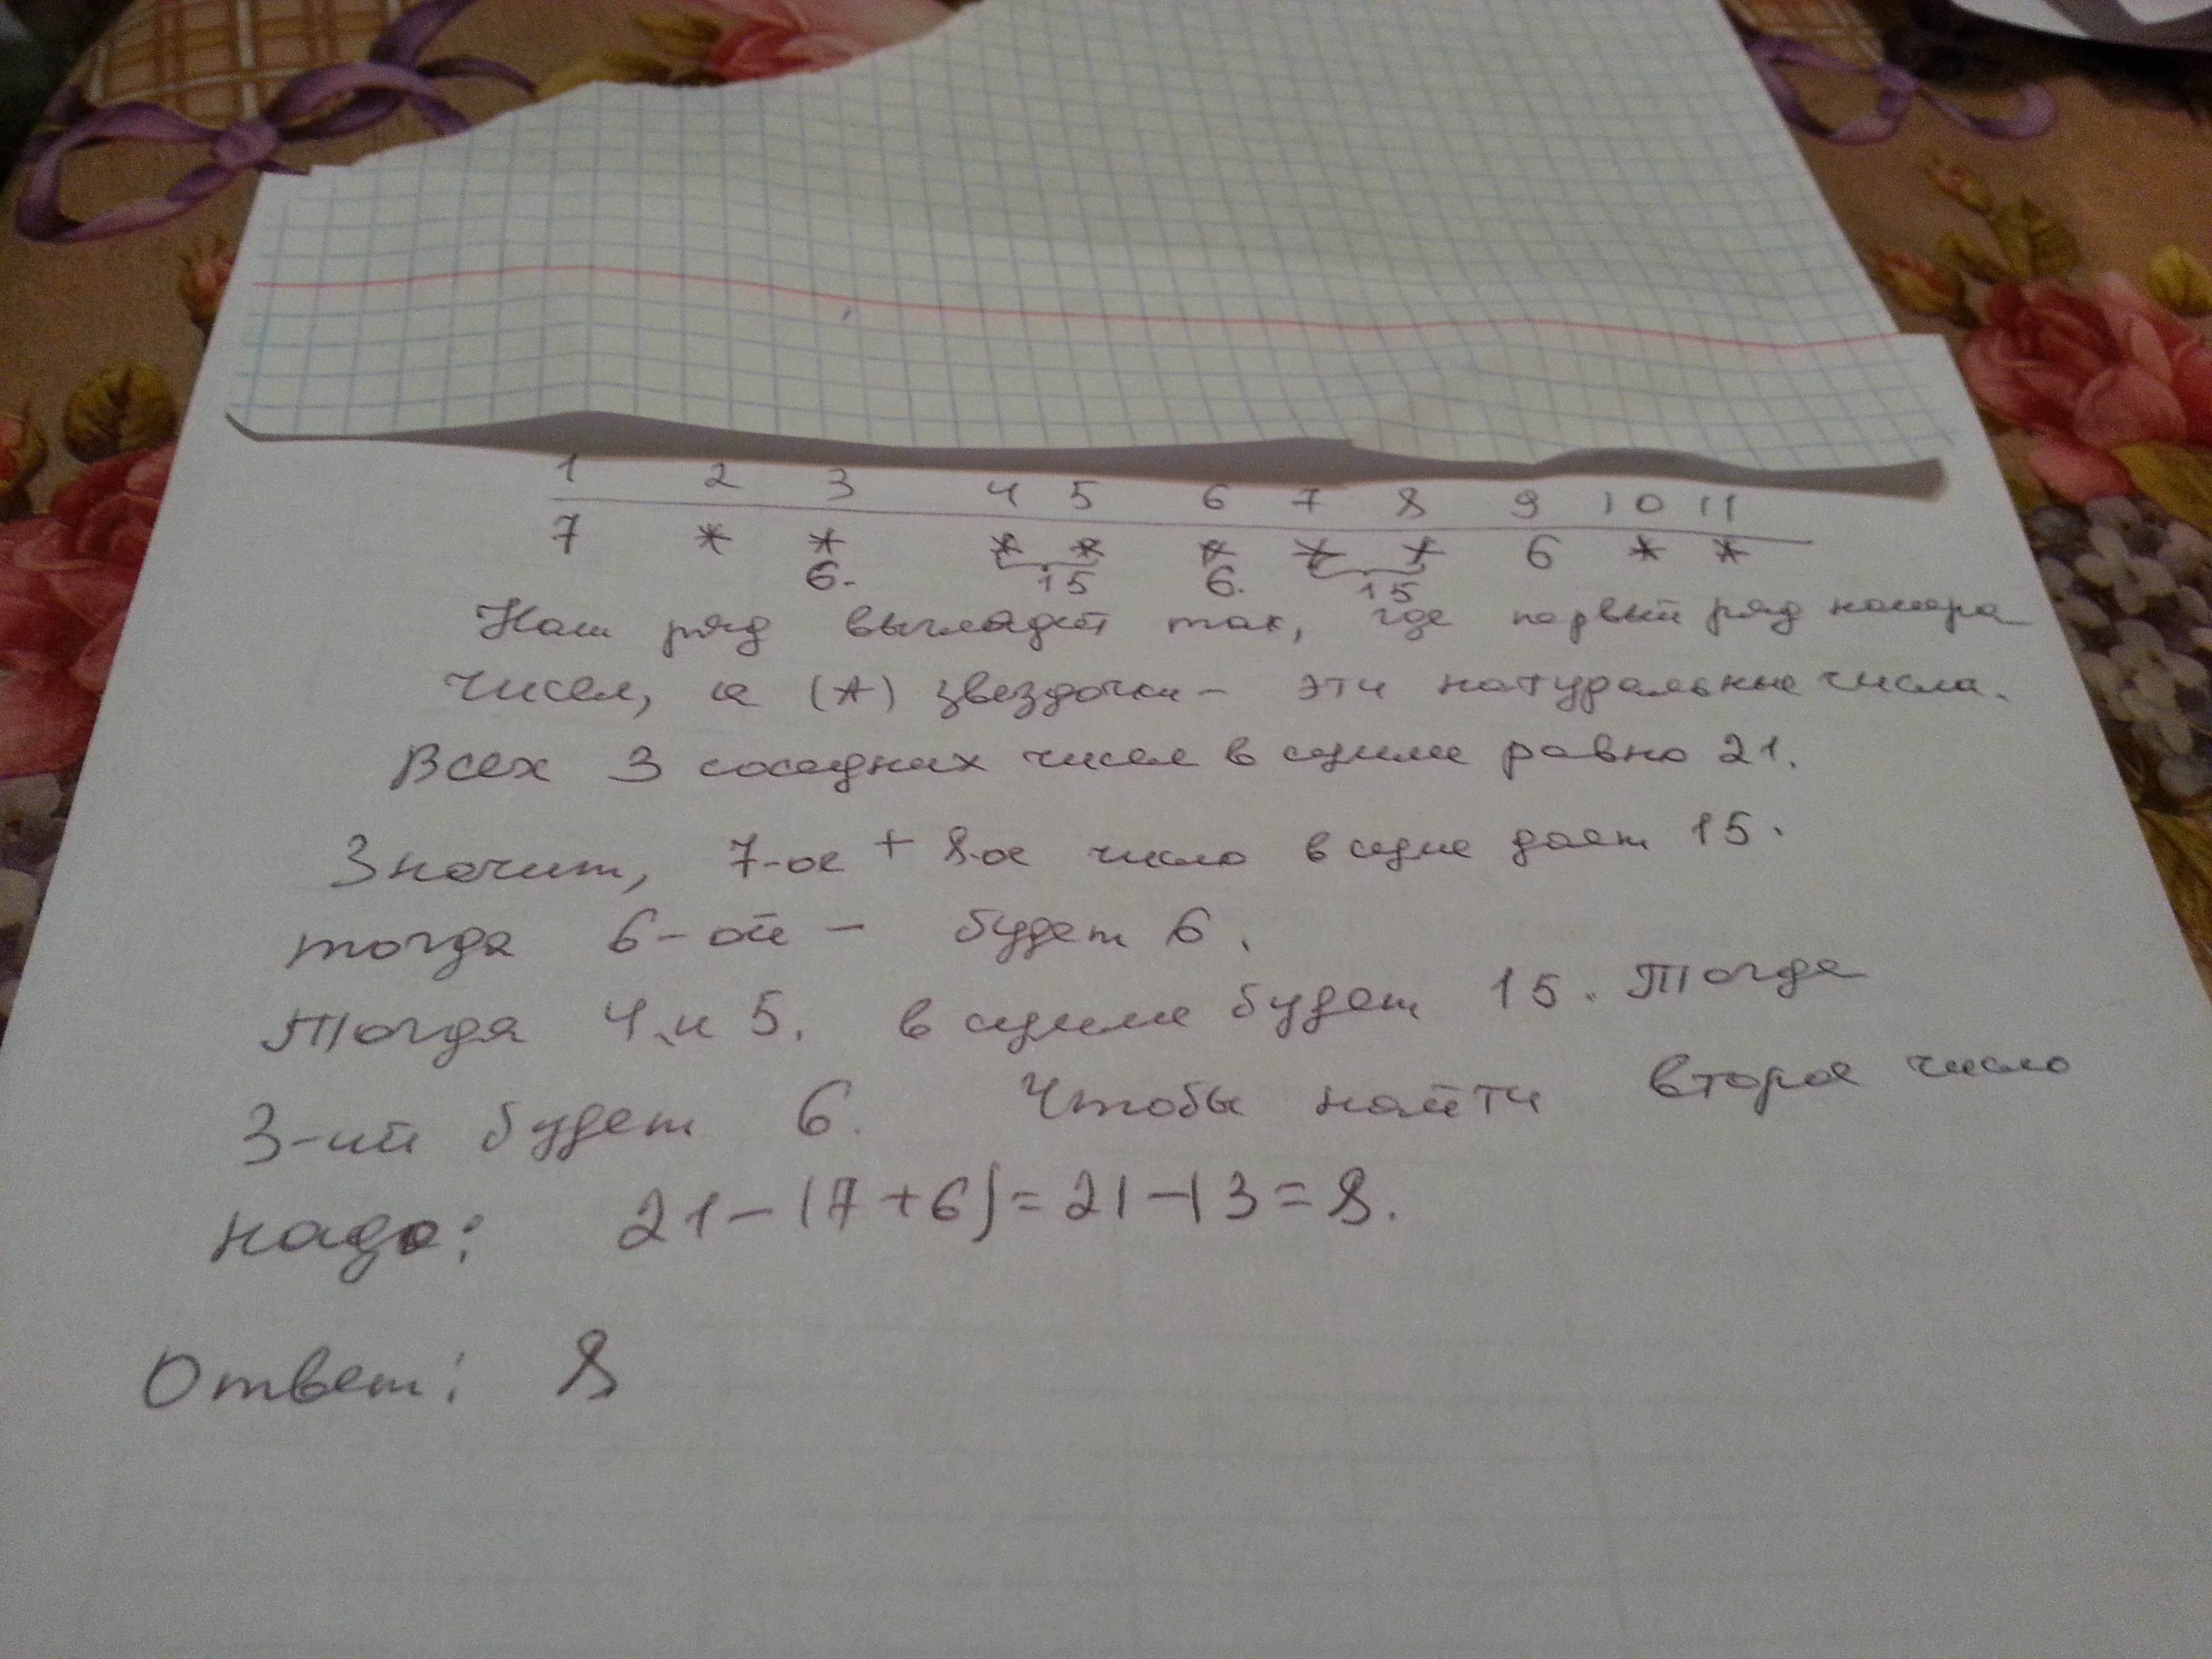 1 2 3 4 5 6 7 8 9 10 11
7 * * * * * * * 6 * *
6. 15 6. 15
Наш ряд выглядит так, где первый ряд номера
чисел, а (*) звездочки - эти натуральные числа.
Всех 3 соседних чисел в сумме равно 21.
Значит, 7-ое + 8-ое число в сумме дает 15.
тогда 6-ой - будет 6.
Тогда 4 и 5. в сумме будет 15. Тогда
3-ий будет 6. Чтобы найти второе число
надо: 21-(7+6)=21-13=8.
Ответ: 8